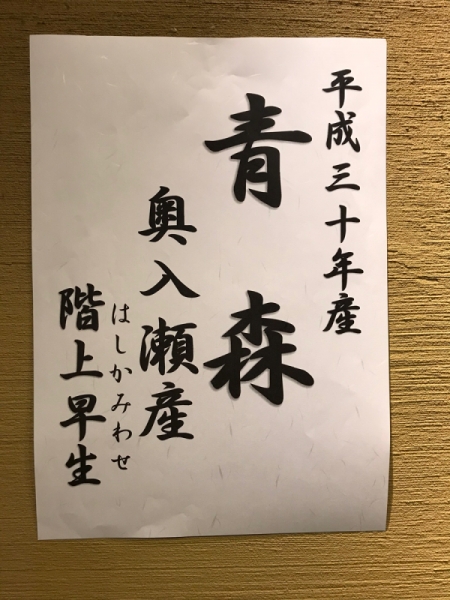 平成三十年産
青森
奥入瀬産
はしかみわせ
階上早生